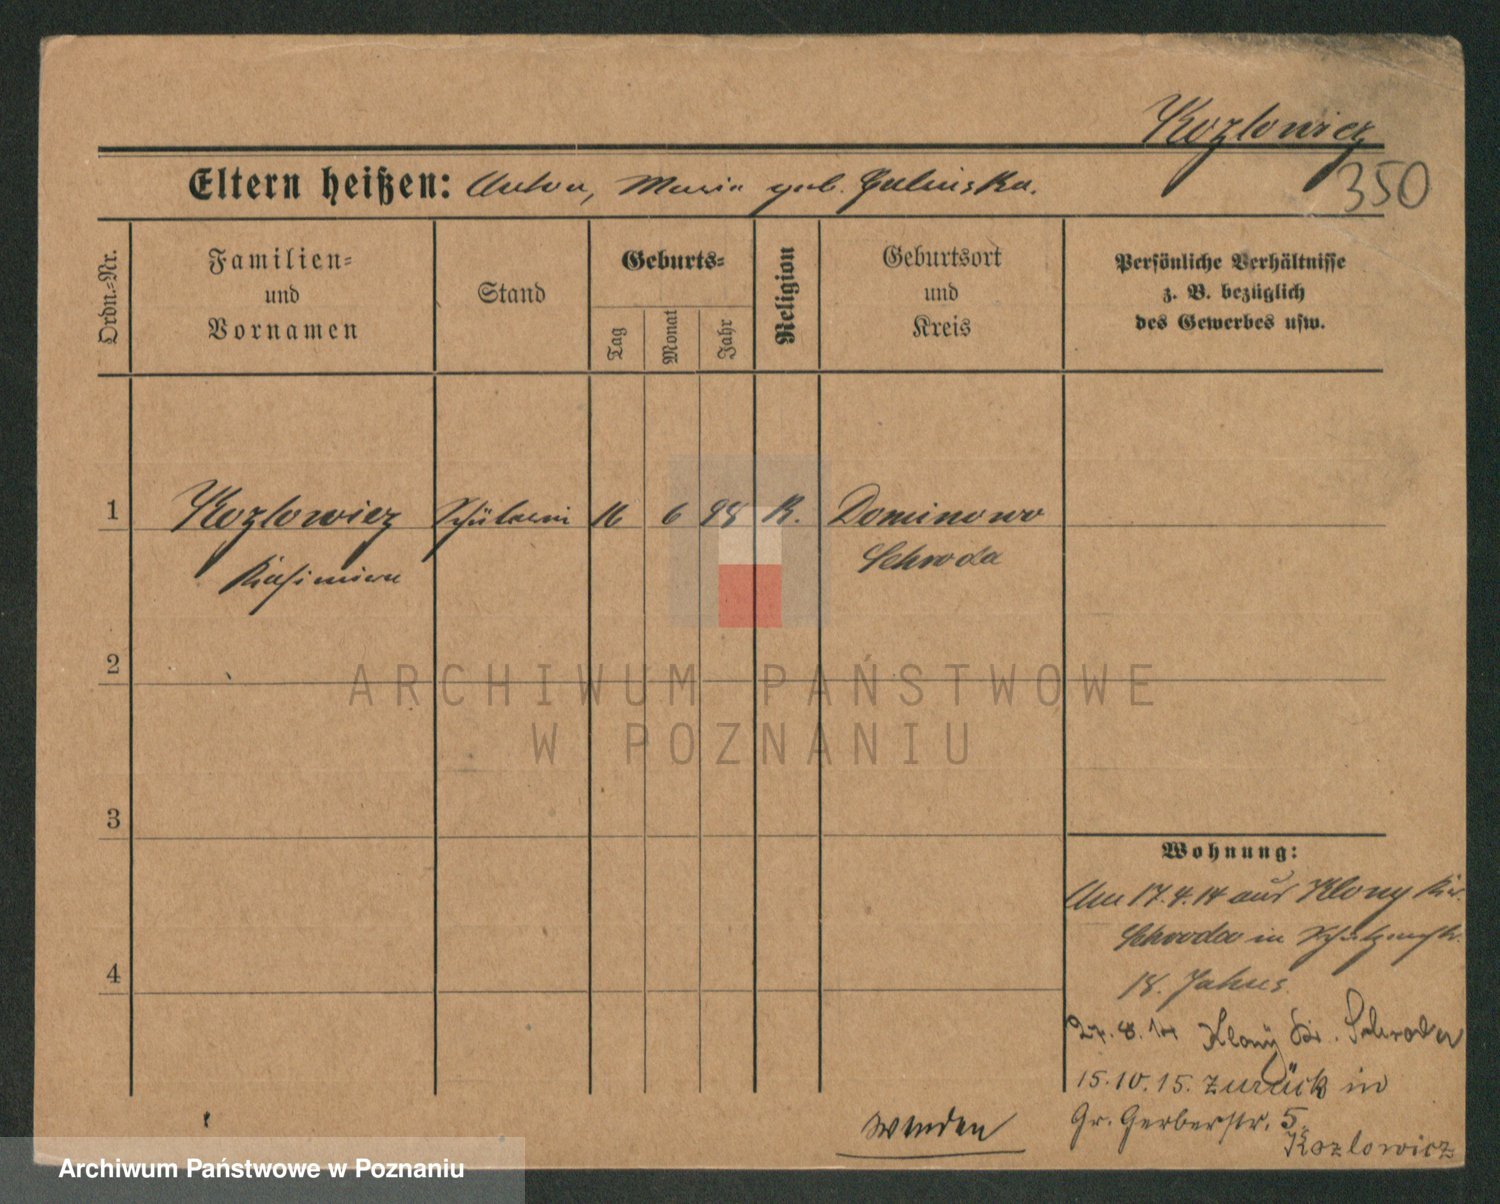 Kozlowicz
350
Eltern heißen: Anton, Maria geb. Galinska.
Ordn.-Nr.
Familien-
und
Vornamen
Stand
Geburts-
Tag
Monat
Jahr
Religion
Geburtsort
und
Kreis
Persönliche Verhältnisse
z. B. bezüglich
des Gewerbes usw.
1 Kozlowicz Schülerin 16 6 98 K. Dominowo
Kasimira Schroda
2
ARCHIWUM PAŃSTWOWE
W POZNANIU
3
Wohnung:
Am 17.4.14 aus Klony Kr.
Schroda in
4
18.
27.8.14 Klony Kr. Schroda
15.10.15. zurück in
Gr. Gerberstr. 5.
Kozlowicz
wenden
Archiwum Państwowe w Poznaniu